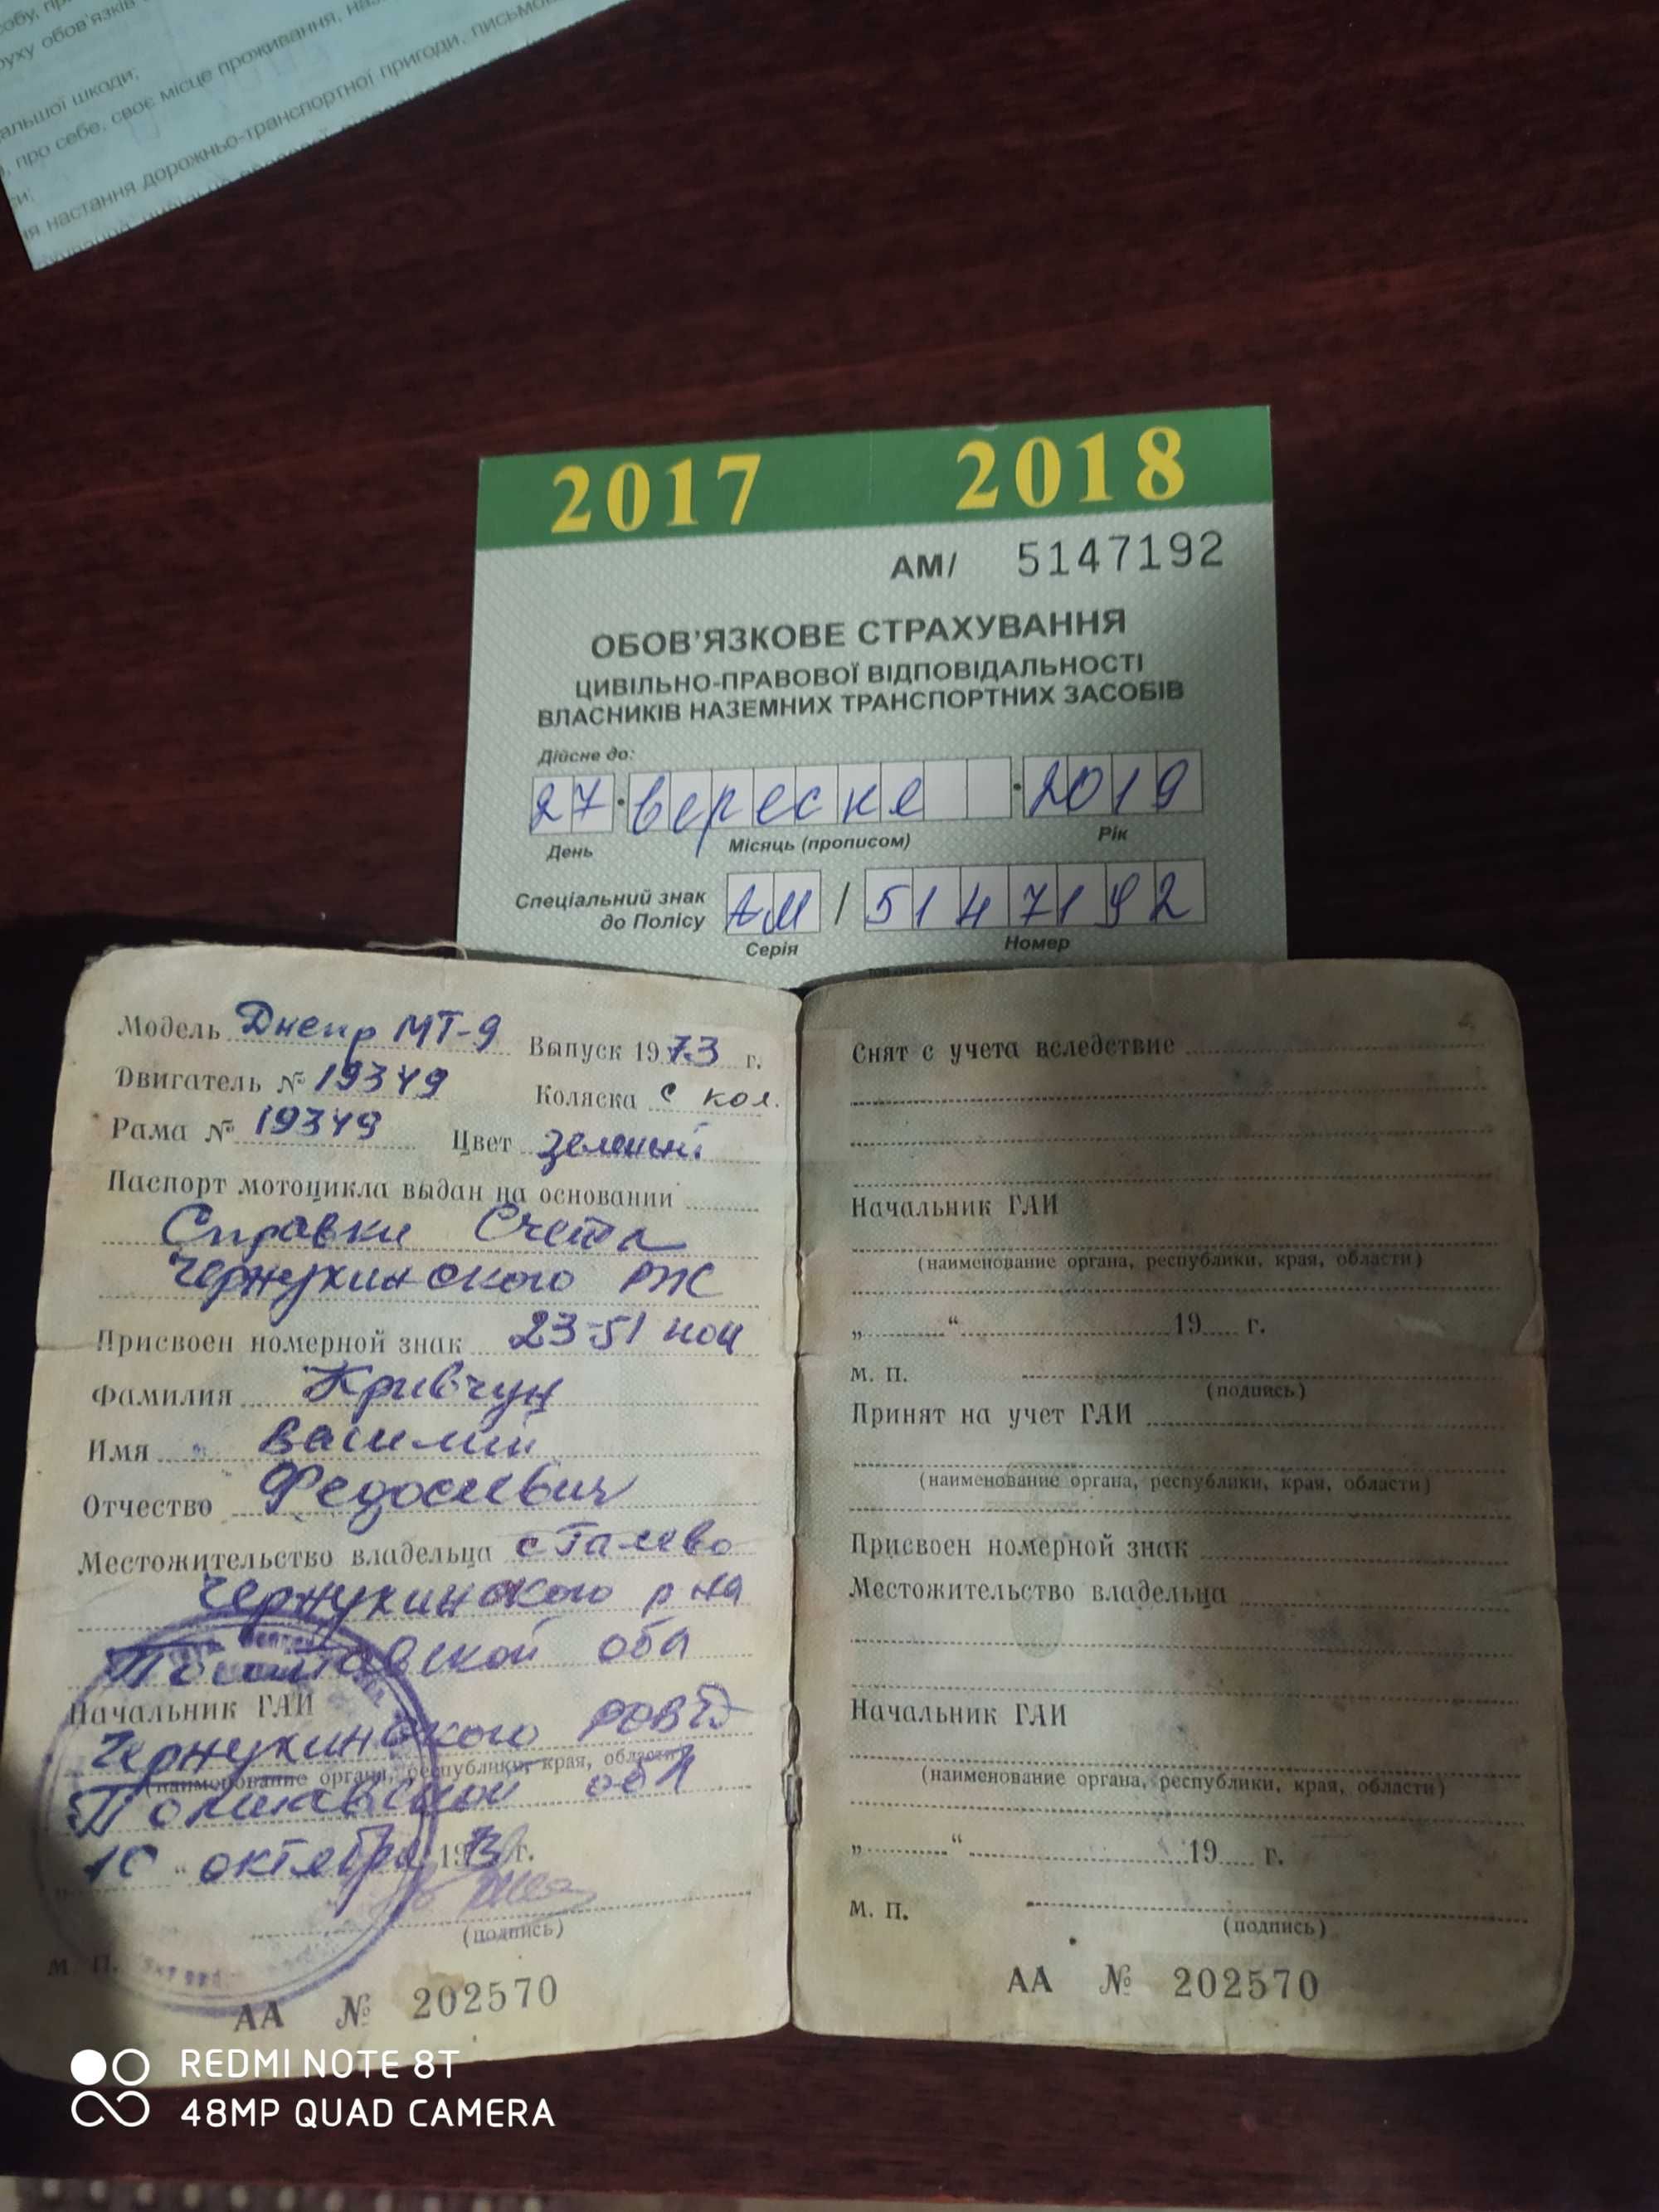 обу, пр
уху обов'язків
альшої шкоди;
, про себе, своє місце проживання, на
си;
ня настання дорожньо-транспортної пригоди, письмо
2017 2018
АМ/ 5147192
ОБОВ'ЯЗКОВЕ СТРАХУВАННЯ
ЦИВІЛЬНО-ПРАВОВОЇ ВІДПОВІДАЛЬНОСТІ
ВЛАСНИКІВ НАЗЕМНИХ ТРАНСПОРТНИХ ЗАСОБІВ
Дійсне до:
27 · вересня · 2019
День Місяць (прописом) Рік
Спеціальний знак АМ / 5147192
до Полісу
Серія Номер
Модель Днепр МТ-9 Выпуск 1973 г.
Двигатель № 19349 Коляска с кол.
Рама № 19349 Цвет зеленый
Паспорт мотоцикла выдан на основании
Справки Счета
Чернухинского
Присвоен номерной знак 23-51 пои
Фамилия Кривчун
Имя Василий
Отчество Федосиевич
Местожительство владельца с
Чернухинского р на
Полтавской обл
Начальник ГАИ
Чернухинского РОВД
(наименование органа, республики, края, области)
Полтавской обл
10 „ октября 1973 г.
(подпись)
М. П.
АА № 202570
Снят с учета вследствие
Начальник ГАИ
(наименование органа, республики, края, области)
„ “ 19 г.
М. П.
(подпись)
Принят на учет ГАИ
(наименование органа, республики, края, области)
Присвоен номерной знак
Местожительство владельца
Начальник ГАИ
(наименование органа, республики, края, области)
„ “ 19 г.
М. П.
(подпись)
АА № 202570
REDMI NOTE 8T
48MP QUAD CAMERA